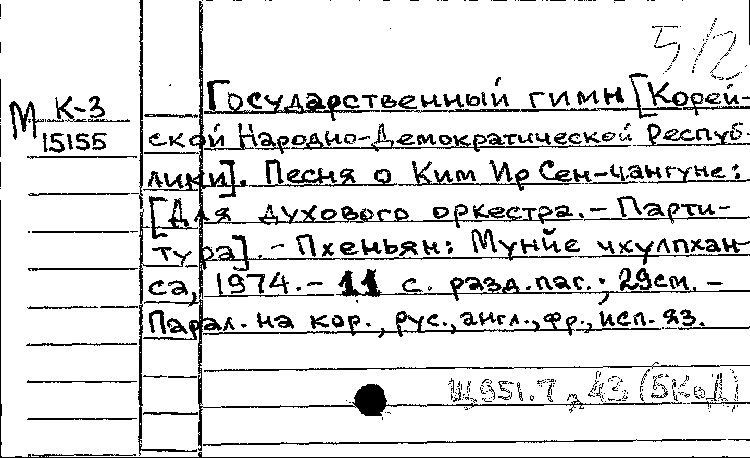 5/2
М К-3
15155
Государственный гимн [Корей-
ской Народно-Демократической Респуб-
лики]. Песня о Ким Ир Сен-чангуне:
[Для духового оркестра. - Парти-
тура]. - Пхеньян: Мунйе чкулпхан-
са, 1974. - 11 с. разд. паг.; 29 см. -
Парал. на кор., рус., англ., фр., исп. яз.
Щ951.7,43 (5КоД)